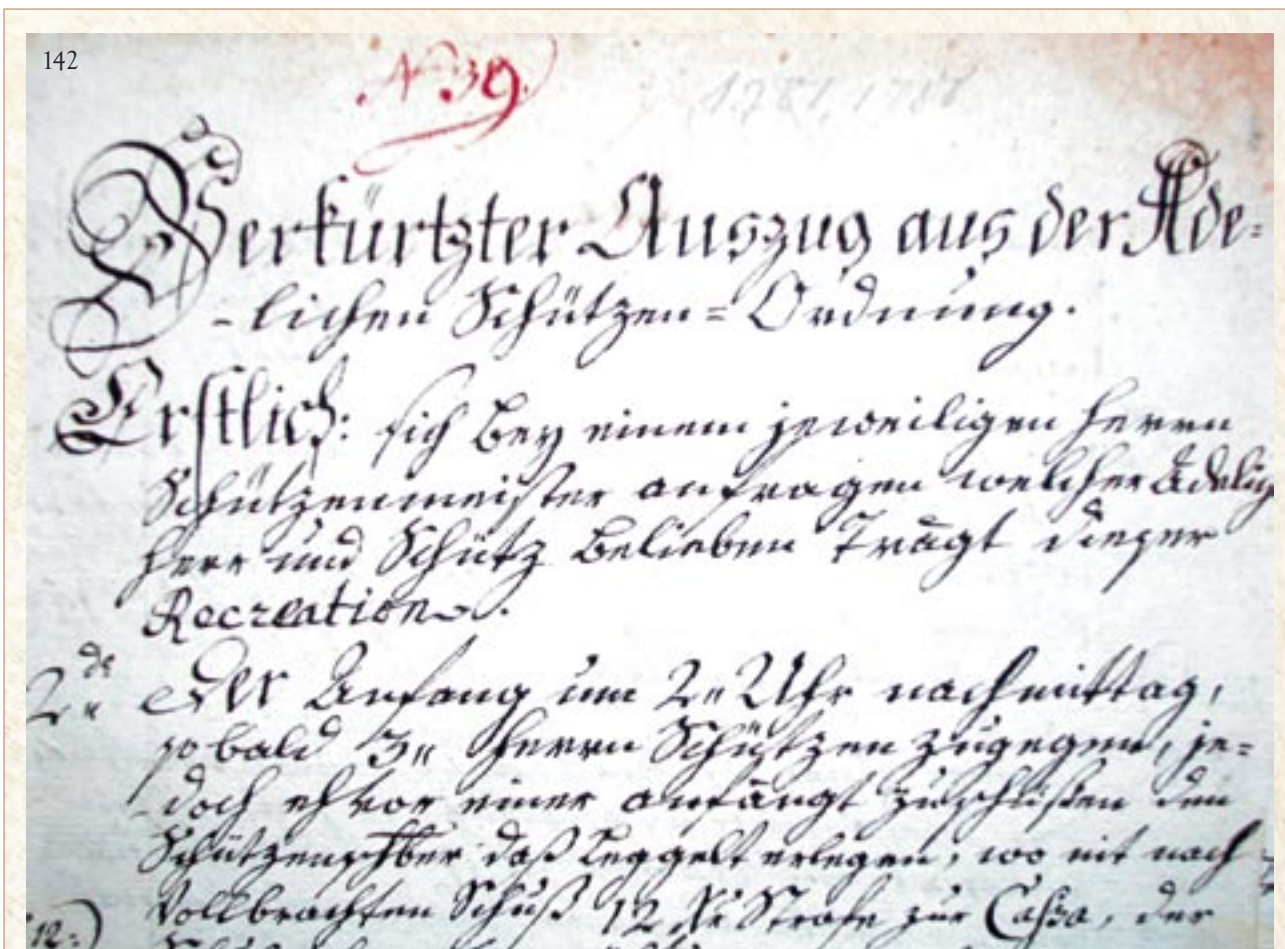 142
N 39.
1781, 1781
Verkürtzter Auszug aus der Ade=
-lichen Schützen=Ordnung.
Erstlich: sich bey einem jeweiligen Herrn
Schützenmeister anfragen welcher Adelig
Herr und Schütz belieben Trägt dieser
Recreation.
2de Der Anfang um 2" Uhr nachmittag,
so bald 3" Herrn Schützen zugegen, je=
doch ehvor einer anfängt zuschüßen dem
Schützenschreiber daß Leggelt erlegen, wo nit nach
Vollbrachten Schuß 12 Xr Strafe zur Cassa, der
12:)